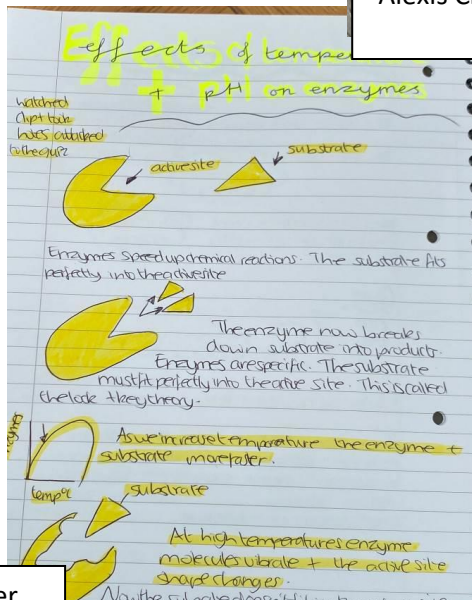 Alexis
Effects of tempe
+ pH on enzymes
watched
clip + took
notes attached
active site
substrate
Enzymes speed up chemical reactions. The substrate fits
perfectly into the active site
The enzyme now breaks
down substrate into products.
Enzymes are specific. The substrate
must fit perfectly into the active site. This is called
the lock + key theory.
As we increase temperature the enzyme +
substrate move faster.
temp
substrate
At high temperatures enzyme
molecules vibrate + the active site
shape changes.
Now the
er